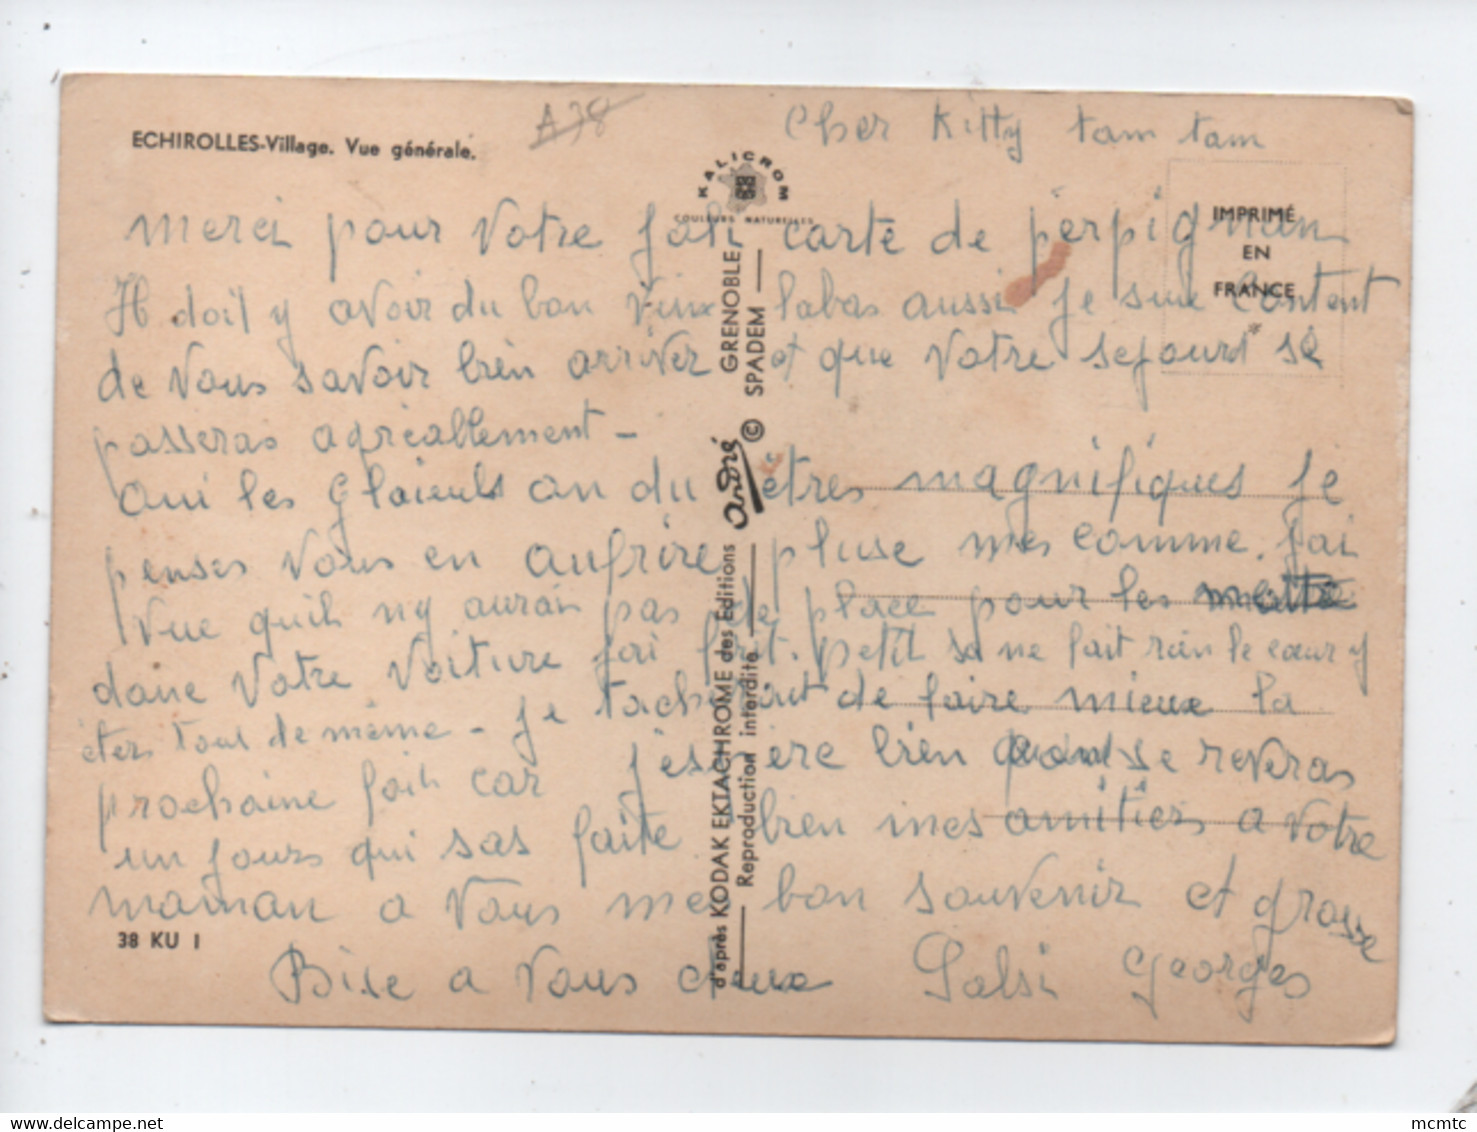 A38
Cher Kitty tam tam
ECHIROLLES-Village. Vue générale.
KALICROM
COULEURS NATURELLES
IMPRIMÉ
EN
FRANCE
merci pour votre joli carte de perpignan
Il doit y avoir du bon vieux labas aussi je suie content
de vous savoir bien arriver et que votre sejourt se
passeras agréablement -
oui les glaieuls on du êtres magnifiques je
penses vous en aufrire pluse mes comme j'ai
vue quih ny aurai pas de place pour les
dane votre voiture jai frit. petit sa ne fait rien le cœur y
êter tout de même - je tacherait de faire mieux la
prochaine foih car j'espère bien quon se reveras
un jours qui sas faite bien mes amitiers a votre
maman a vous mes bon souvenir et grosse
Bise a vous deux Salsi Georges
38 KU 1
d'après KODAK EKTACHROME des Editions André GRENOBLE
Reproduction interdite © SPADEM
mcmtc
delcampe.net